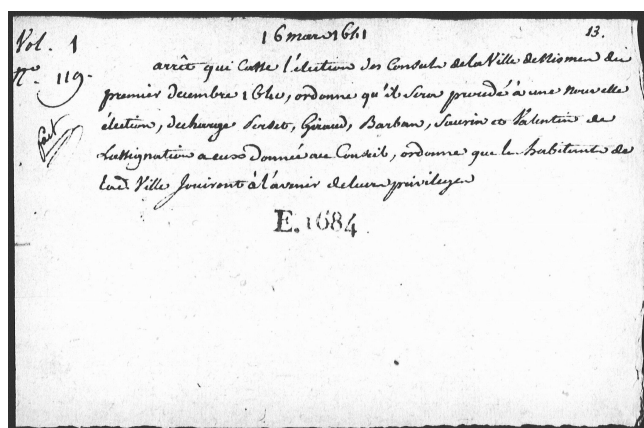 16 mars 1641
13.
Vol. 1
N.º 119.
fait
arrêt qui Casse l'élection des Consuls de la Ville de Nismes du
premier decembre 1640, ordonne qu'il sera procedé à une nouvelle
élection, decharge Perset, Giraud, Barban, Saurin et Valentin de
l'assignation a eux donnée au Conseil, ordonne que les habitants de
lad. Ville Jouiront à l'avenir de leurs privileges
E.1684